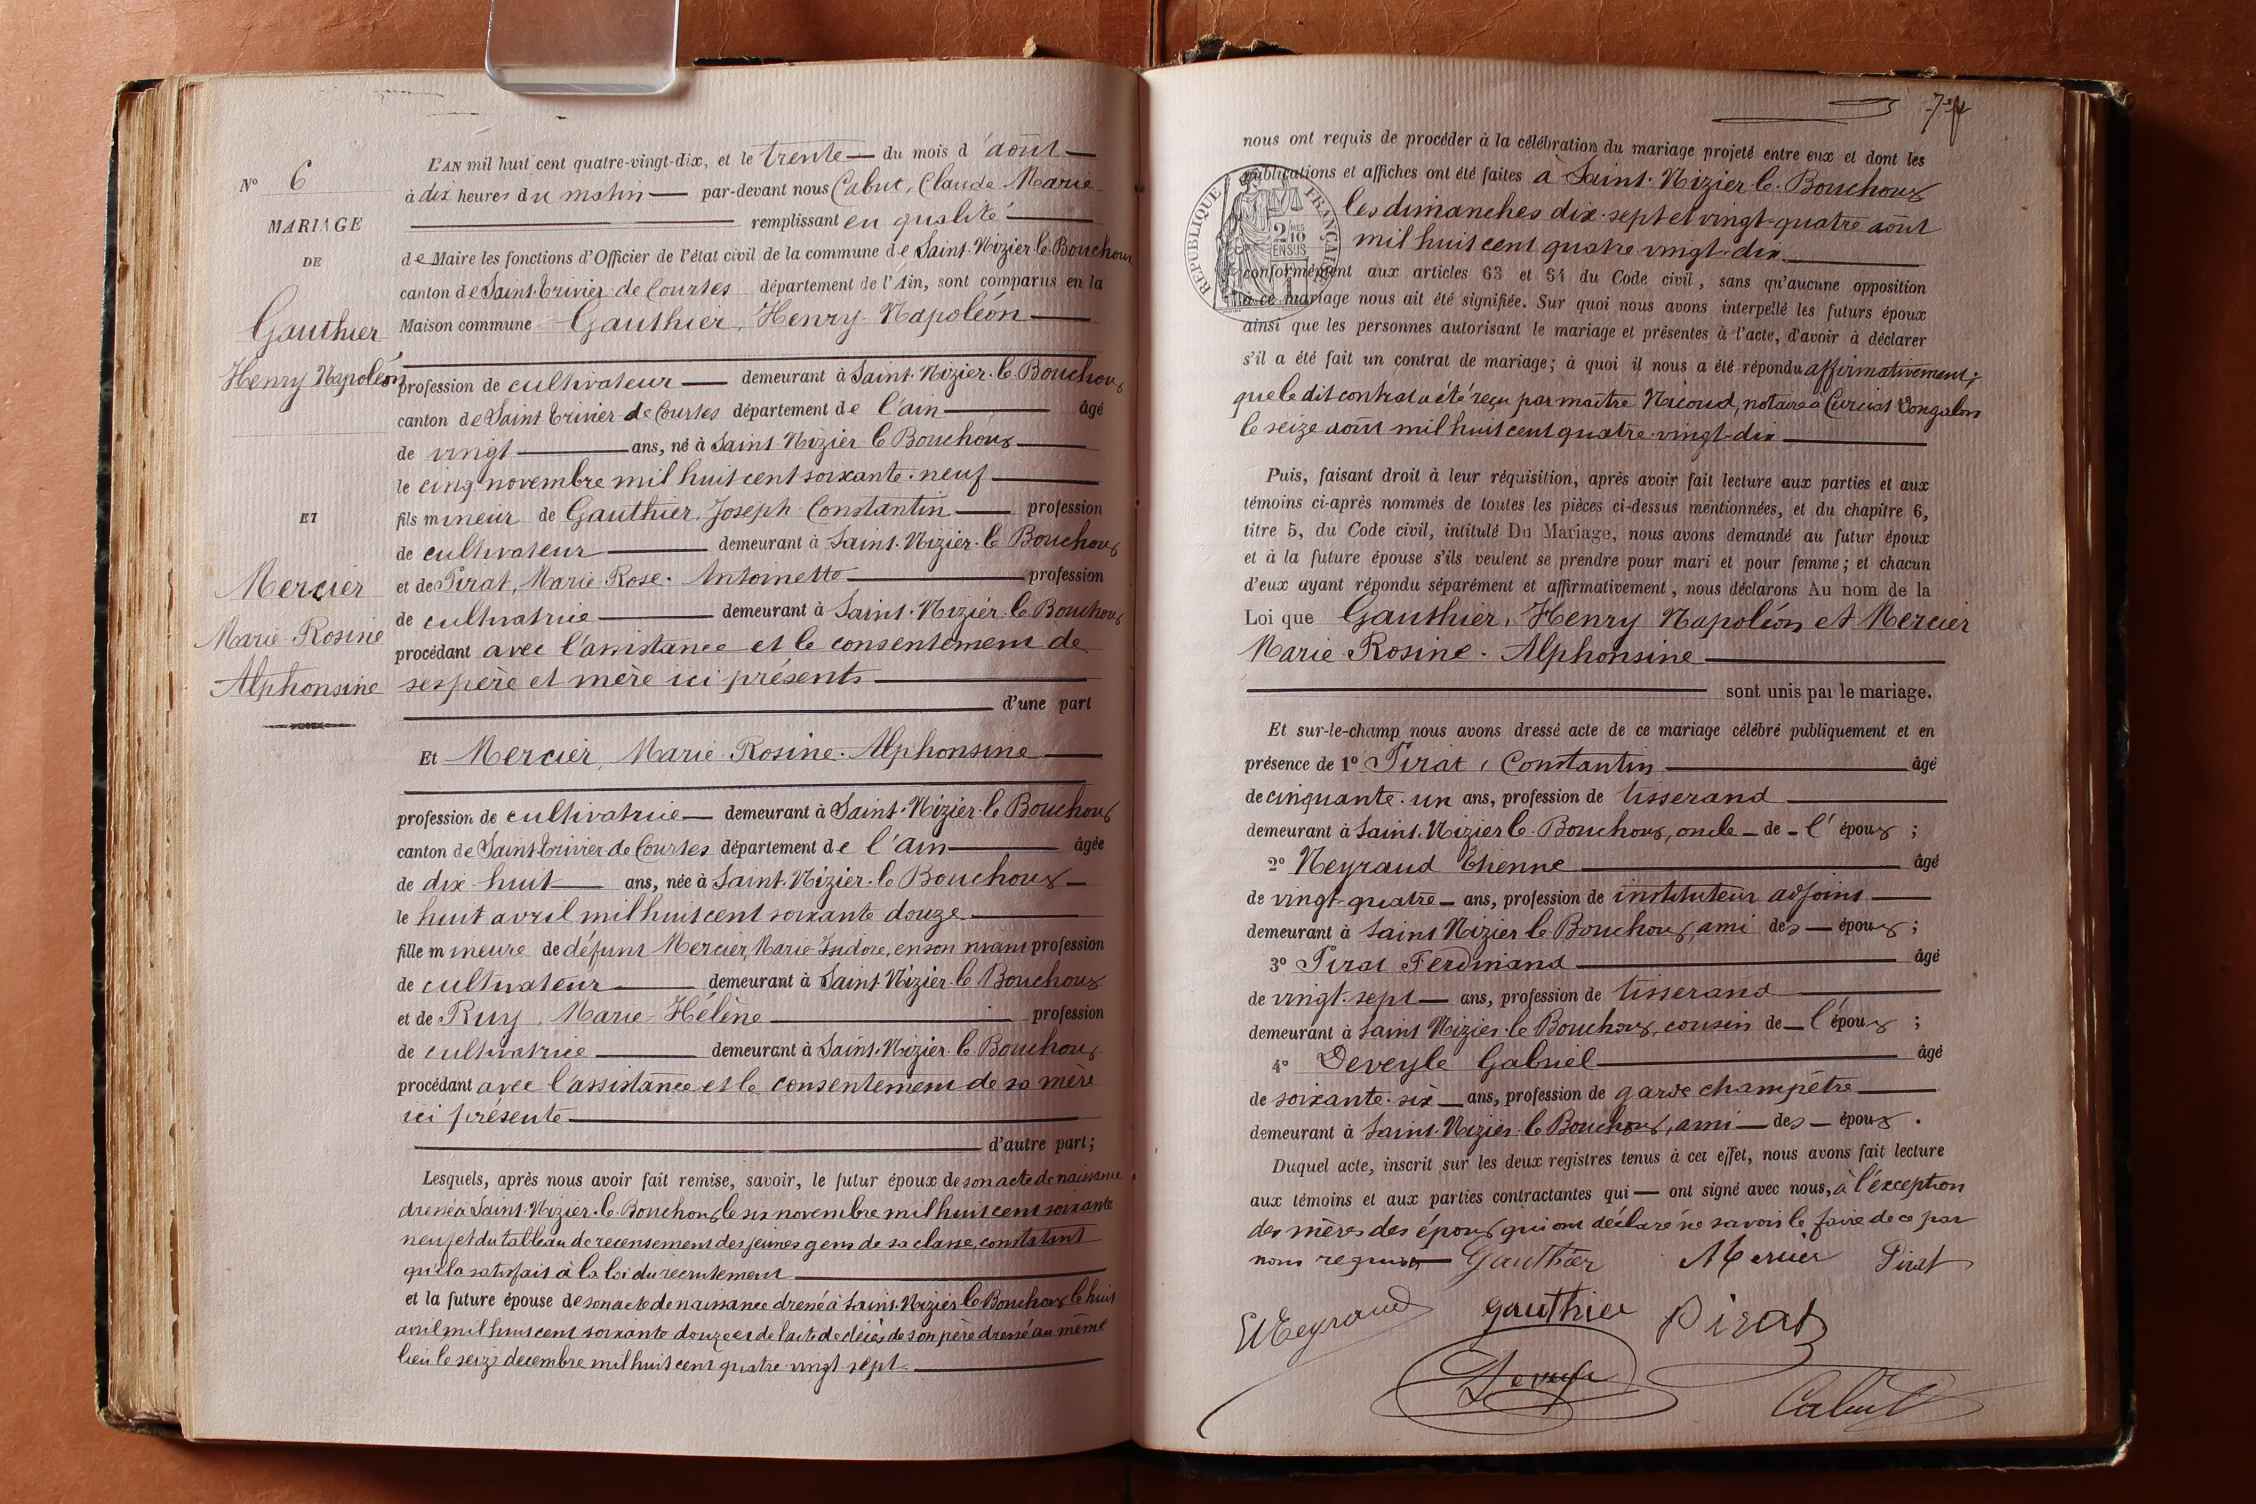 N° 6
MARIAGE
DE
Gauthier
Henry Napoléon
ET
Mercier
Marie Rosine
Alphonsine
L'AN mil huit cent quatre-vingt-dix, et le trente du mois d'août
à dix heures du matin par-devant nous Cabut, Claude Marie
remplissant en qualité
de Maire les fonctions d'Officier de l'état civil de la commune de Saint-Nizier-le-Bouchoux
canton de Saint-Trivier de Courtes département de l'Ain, sont comparus en la
Maison commune Gauthier, Henry Napoléon
profession de cultivateur demeurant à Saint-Nizier-le Bouchoux
canton de Saint Trivier de Courtes département de l'ain âgé
de vingt ans, né à Saint Nizier le Bouchoux
le cinq novembre mil huit cent soixante-neuf
fils mineur de Gauthier, Joseph Constantin profession
de cultivateur demeurant à Saint-Nizier-le Bouchoux
et de Pirat, Marie Rose-Antoinette profession
de cultivatrice demeurant à Saint-Nizier-le Bouchoux
procédant avec l'assistance et le consentement de
ses père et mère ici présents
d'une part
Et Mercier, Marie Rosine-Alphonsine
profession de cultivatrice demeurant à Saint-Nizier-le Bouchoux
canton de Saint Trivier de Courtes département de l'ain âgée
de dix-huit ans, née à Saint-Nizier-le Bouchoux
le huit avril mil huit cent soixante douze
fille mineure de défunt Mercier, Marie Isidore, en son vivant profession
de cultivateur demeurant à Saint-Nizier-le Bouchoux
et de Ruy, Marie-Hélène profession
de cultivatrice demeurant à Saint-Nizier-le Bouchoux
procédant avec l'assistance et le consentement de sa mère
ici présente
d'autre part;
Lesquels, après nous avoir fait remise, savoir, le futur époux de son acte de naissance
dressé à Saint-Nizier-le-Bouchoux le six novembre mil huit cent soixante
neuf et du tableau de recensement des jeunes gens de sa classe, constatant
qu'il a satisfait à la loi du recrutement
et la future épouse de son acte de naissance dressé à Saint-Nizier le Bouchoux le huit
avril mil huit cent soixante douze et de l'acte de décès de son père dressé au même
lieu le seize decembre mil huit cent quatre-vingt-sept
nous ont requis de procéder à la célébration du mariage projeté entre eux et dont les
publications et affiches ont été faites à Saint-Nizier-le-Bouchoux
les dimanches dix-sept et vingt-quatre août
mil huit cent quatre vingt-dix
conformément aux articles 63 et 64 du Code civil, sans qu'aucune opposition
à ce mariage nous ait été signifiée. Sur quoi nous avons interpellé les futurs époux
ainsi que les personnes autorisant le mariage et présentes à l'acte, d'avoir à déclarer
s'il a été fait un contrat de mariage; à quoi il nous a été répondu affirmativement;
que le dit contrat a été reçu par maître Nicoud, notaire à Curciat Dongalon
le seize août mil huit cent quatre-vingt-dix
RÉPUBLIQUE FRANÇAISE
2/10 EN SUS
Puis, faisant droit à leur réquisition, après avoir fait lecture aux parties et aux
témoins ci-après nommés de toutes les pièces ci-dessus mentionnées, et du chapitre 6,
titre 5, du Code civil, intitulé Du Mariage, nous avons demandé au futur époux
et à la future épouse s'ils veulent se prendre pour mari et pour femme; et chacun
d'eux ayant répondu séparément et affirmativement, nous déclarons Au nom de la
Loi que Gauthier, Henry Napoléon et Mercier
Marie-Rosine-Alphonsine
sont unis par le mariage.
Et sur-le-champ nous avons dressé acte de ce mariage célébré publiquement et en
présence de 1° Pirat, Constantin âgé
de cinquante-un ans, profession de tisserand
demeurant à Saint-Nizier le-Bouchoux, oncle de l'époux;
2° Neyraud Etienne âgé
de vingt-quatre ans, profession de instituteur adjoint
demeurant à Saint Nizier le Bouchoux, ami des époux;
3° Pirat Ferdinand âgé
de vingt-sept ans, profession de tisserand
demeurant à Saint Nizier-le Bouchoux, cousin de l'époux;
4° Deveyle Gabriel âgé
de soixante-six ans, profession de garde champêtre
demeurant à Saint-Nizier-le Bouchoux, ami des époux.
Duquel acte, inscrit sur les deux registres tenus à cet effet, nous avons fait lecture
aux témoins et aux parties contractantes qui ont signé avec nous, à l'exception
des mères des époux qui ont déclaré ne savoir le faire de ce par
nous requises Gauthier Mercier Pirat
E Neyraud gauthier Pirat
Deveyle
Cabut